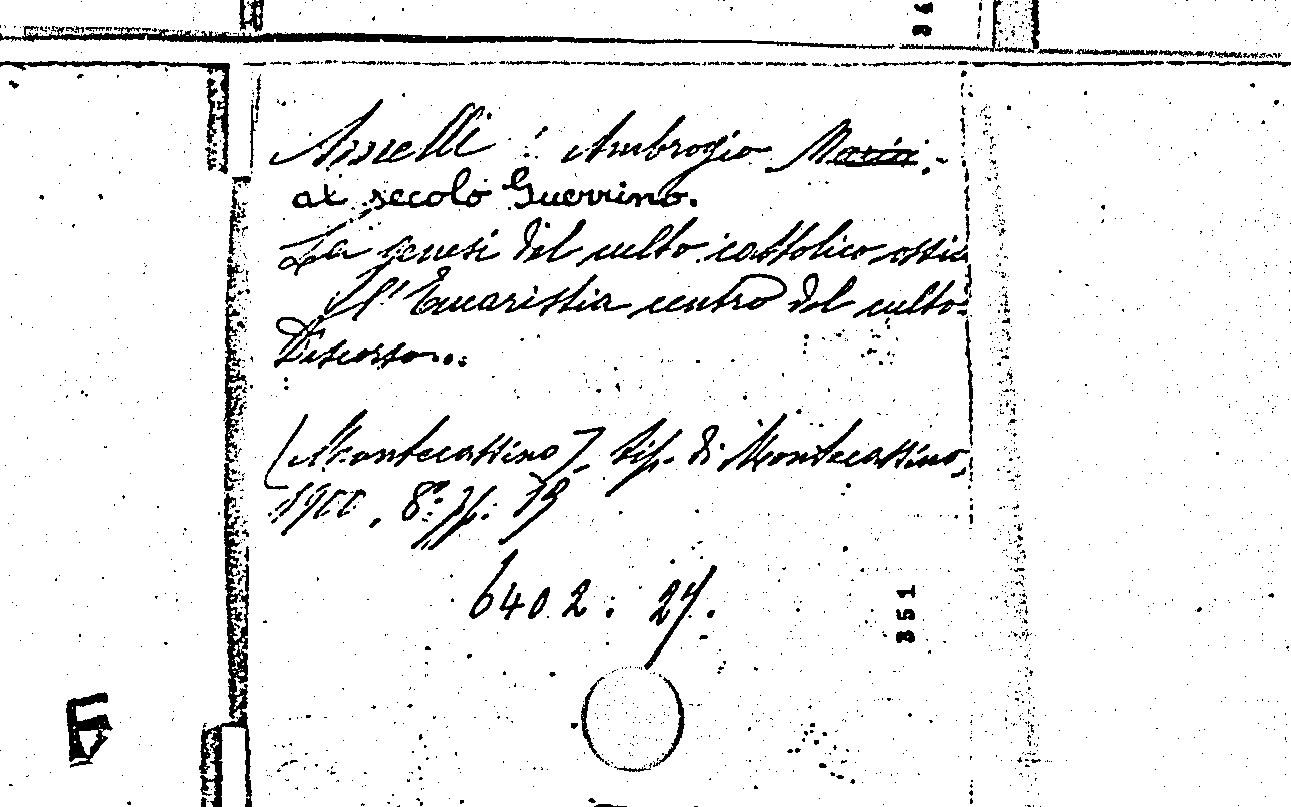 Amelli : Ambrogio Maria.
al secolo Guerrino.
La genesi del culto cattolico ossia
l'Eucaristia centro del culto.
Discorso...
[Montecassino], tip. di Montecassino,
1900, 8° pp. 19
6402. 27.
351